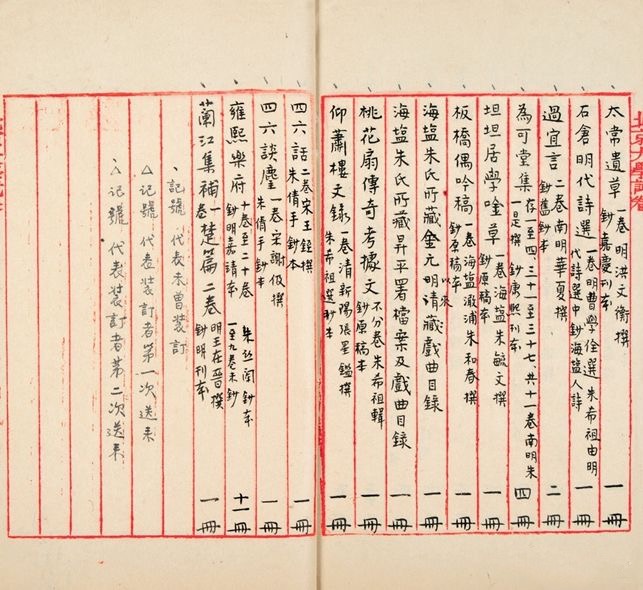 太常遺草 一卷 明洪文衡撰 鈔嘉慶刊本 一冊
石倉明代詩選 一卷 明曹學佺選 朱希祖由明代詩選中鈔海盐人詩 一冊
過宜言 二卷 南明華夏撰 鈔舊鈔本 二冊
為可堂集 存一至四、三十一至三十七、共十一卷 南明朱一是撰 鈔康熙刊本 四冊
坦坦居學唫草 一卷 海塩朱敏文撰 鈔原稿本 一冊
板橋偶吟稿 一卷 海塩澉浦朱和春撰 鈔原稿本 一冊
海塩朱氏所藏金元明清藏戲曲目録 以來 一冊
海塩朱氏所藏昇平署檔案及戲曲目録 一冊
桃花扇傳奇考據文 不分卷 朱希祖輯 鈔原稿本 一冊
仰蕭樓文録 一卷 清新陽張星鑑撰 朱希祖選鈔本 一冊
四六話 二卷 宋王銍撰 朱倩手鈔本 一冊
四六談麈 一卷 宋謝伋撰 朱倩手鈔本 一冊
雍熙樂府 十卷至二十卷 鈔明嘉靖本 一至九卷未鈔 十一冊
蘭江集補一卷 楚篇二卷 明王在晉撰 鈔明刊本 一冊
、記號 代表未曾裝訂
△记號 代表装訂者第一次送来
△记號 代表装訂者第二次送来